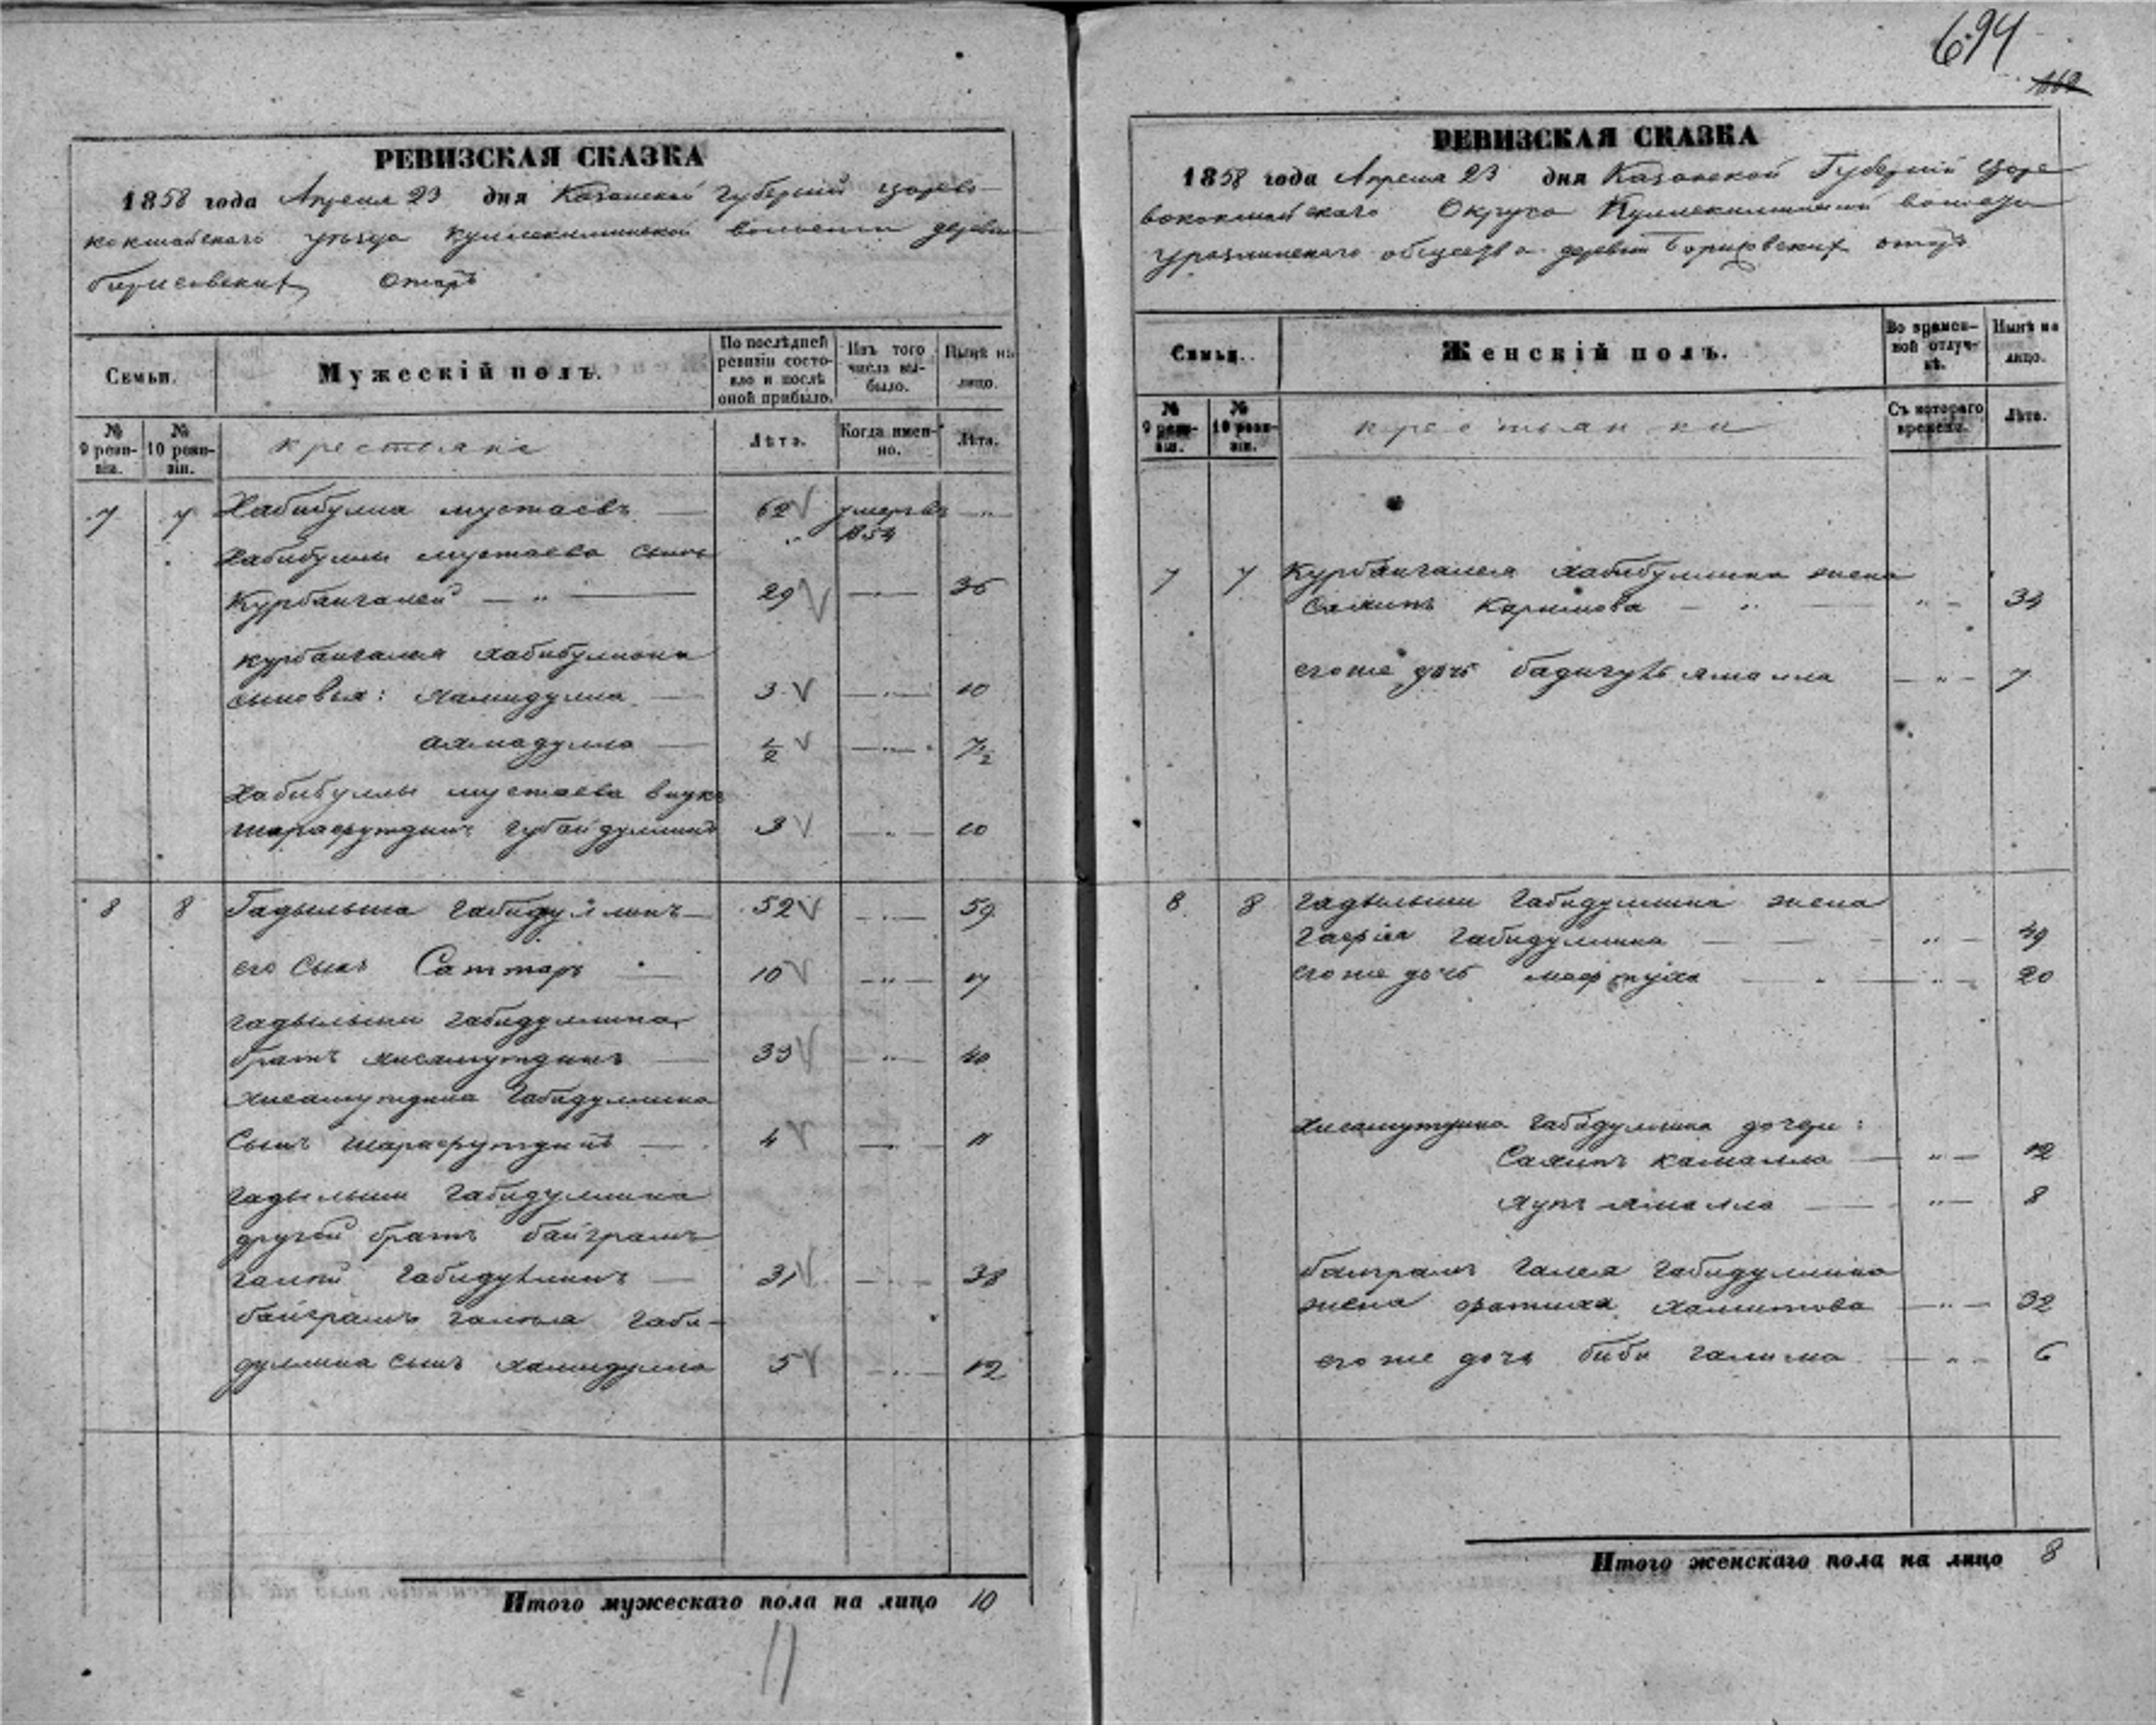 694
РЕВИЗСКАЯ СКАЗКА
1858 года Апреля 23 дня Казанской Губернiи Царево-
кокшайскаго уезда волости деревни
Борисовских Отаръ
Семьи.
Мужескiй полъ.
По послѣдней ревизiи состояло и послѣ оной прибыло.
Изъ того числа выбыло.
Нынѣ на лицо.
№ 9 ревизiи.
№ 10 ревизiи.
крестьяне
Лѣта.
Когда именно.
Лѣта.
7 7 Хабибулла мустаевъ — 62 умеръ въ 1854 — „ —
Хабибуллы мустаева сынъ
Курбангалей — „ — 29 — „ — 36
курбангалея хабибуллина
сыновья: хамидулла — 3 — „ — 10
ахмадулла — 1/2 — „ — 7 1/2
Хабибуллы мустаева внукъ
шарафутдинъ губайдуллинъ 3 — „ — 10
8 8 Гадыльша габидуллинъ — 52 — „ — 59
его сынъ Саттаръ 10 — „ — 17
гадыльши габидуллина
братъ хисамутдинъ — 33 — „ — 40
хисамутдина габидуллина
сынъ шарафутдинъ — 4 — „ — 11
гадыльши габидуллина
другой братъ байграмъ
галей габидуллинъ — 31 — „ — 38
байграмъ галея габи-
дуллина сынъ хамидулла 5 — „ — 12
Итого мужескаго пола на лицо 10
11
РЕВИЗСКАЯ СКАЗКА
1858 года Апреля 23 дня Казанской Губернiи Царе
вококшайскаго Округа волости
общества деревни Борисовских отаръ
Семьи.
Женскiй полъ.
Во временной отлучкѣ.
Нынѣ на лицо.
№ 9 ревизiи.
№ 10 ревизiи.
крестьянки
Съ котораго времени.
Лѣта.
7 7 Курбангалея хабибуллина жена
Сахипъ Каримова — „ — „ — 34
его же дочь бадигулъ ямалла — „ — 7
8 8 гадыльши габидуллина жена
габидуллина — „ — 49
его же дочь — „ — 20
хисамутдина габидуллина дочери:
Сахипъ камалла — „ — 12
ямалла — „ — 8
баиграмъ галея габидуллина
жена хамитова — „ — 32
его же дочь биби галима — „ — 6
Итого женскаго пола на лицо 8